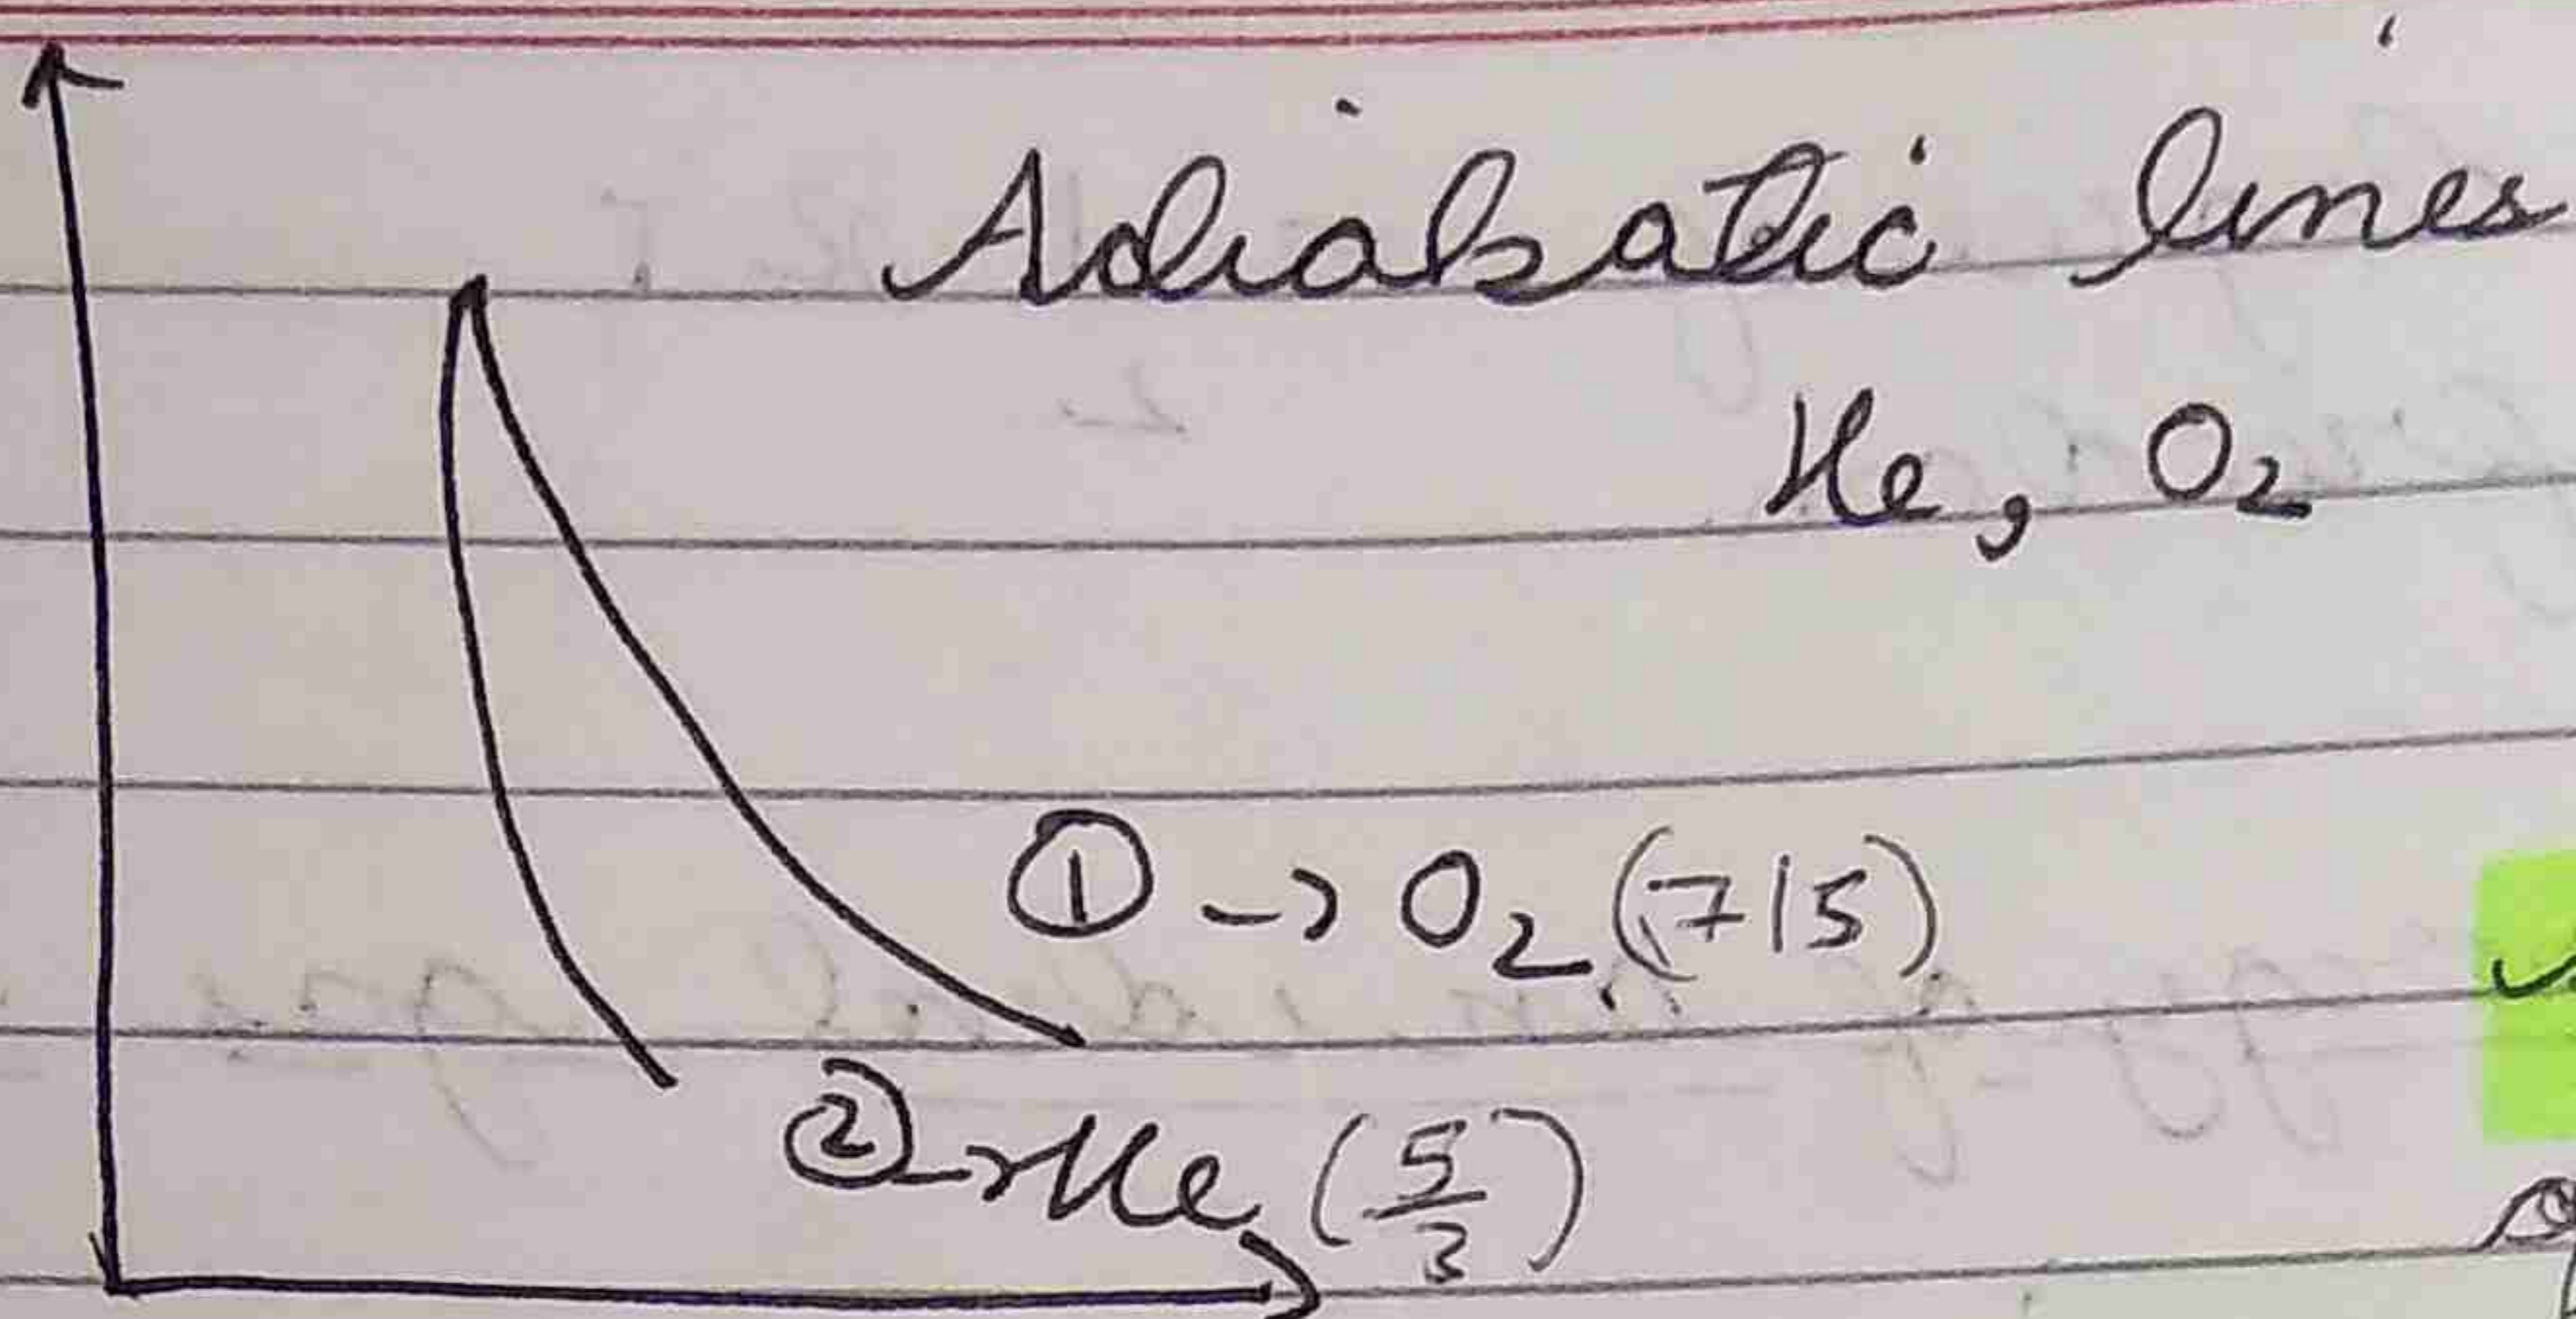 Adiabatic lines
He, O₂
① → O₂ (7/5)
② → He (5/3)